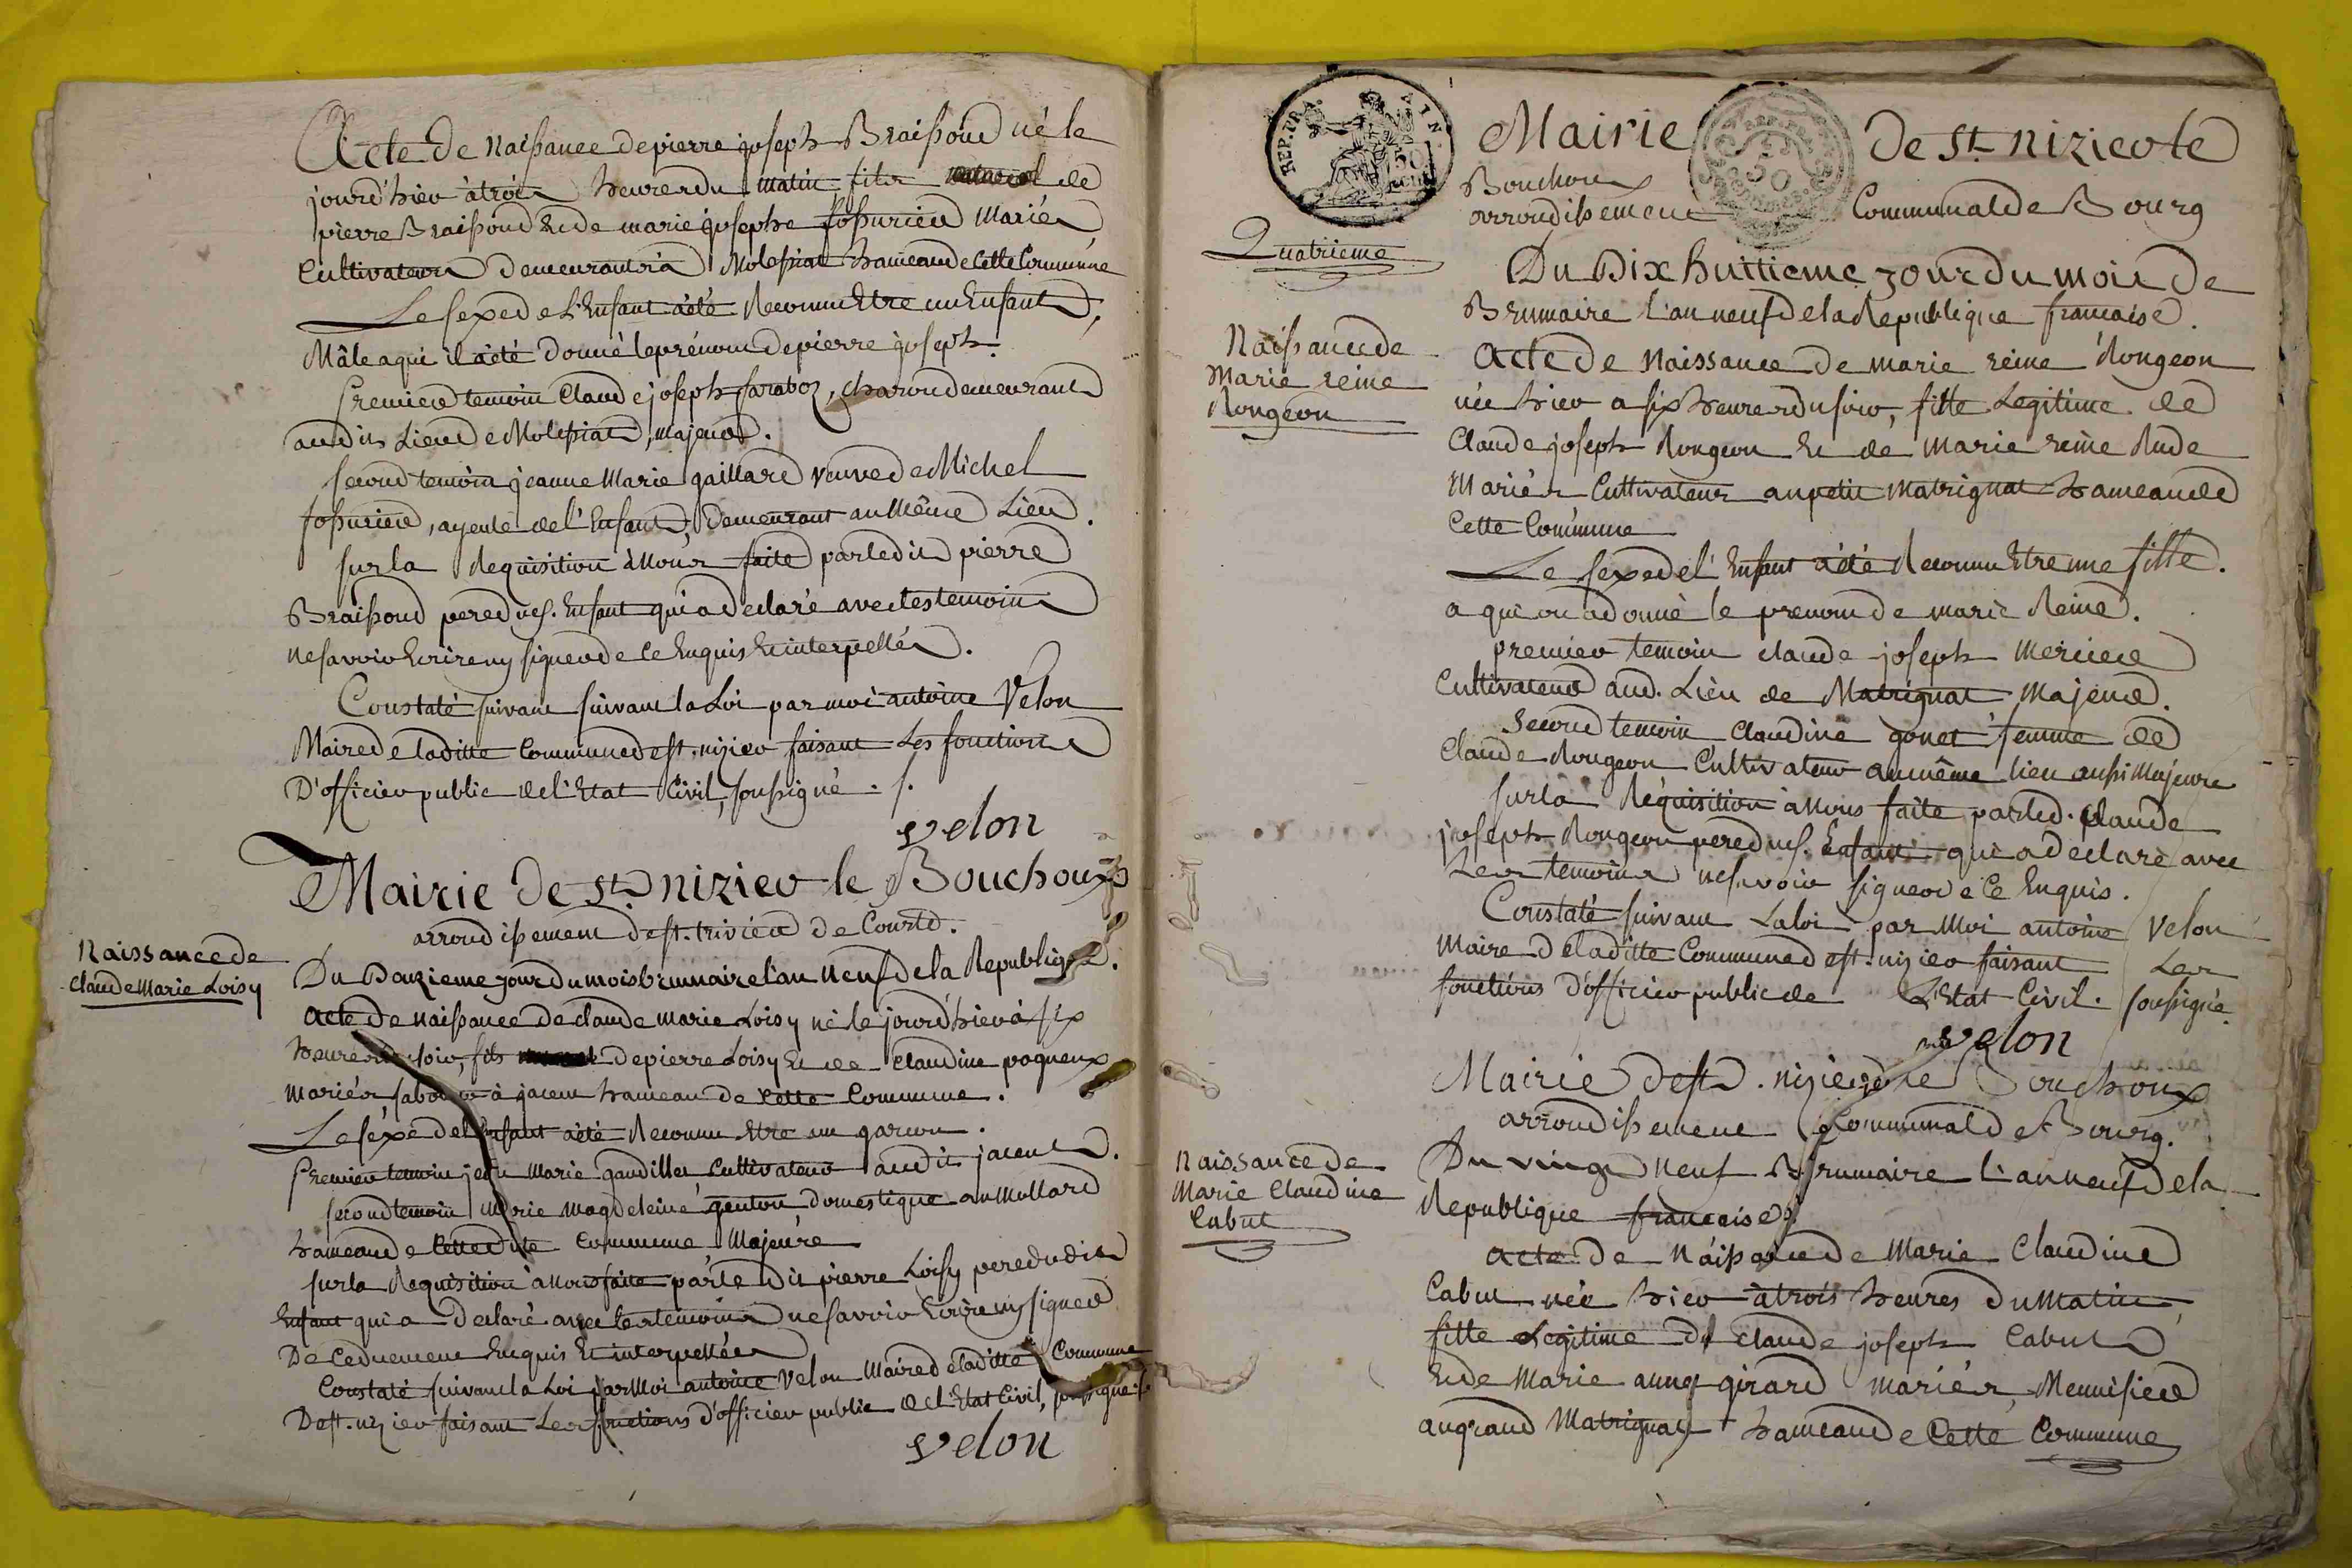 Acte de Naissance de pierre joseph Braissoud né le
jourd'hier à trois heures du matin fils de
pierre Braissoud Et de marie josephe fossurier Mariés
Cultivateurs demeurants à Molessiat hameau de Cette Commune
Le sexe de L'Enfant a été Reconnu Etre un Enfant
Mâle a qui il a été donné le prénom de pierre joseph.
Premier temoin Claude joseph faraboz, charon demeurant
au dit Lieu de Molessiat, majeur.
second temoin jeanne Marie gaillard veuve de Michel
fossurier, ayeule de l'Enfant, demeurant au Même Lieu.
sur la Requisition à Nous faite par ledit pierre
Braissoud pere dud. Enfant qui a declaré avec les temoins
ne savoir Ecrire ny signer de Ce Enquis Et interpellés.
Constaté suivant suivant la Loi par moi antoine Velon
Maire de laditte Commune de st. nizier faisant Les fonctions
D'officier public de l'Etat Civil, soussigné ./.
velon
Mairie de st nizier le Bouchoux
arrondissement de st. trivier de Courte.
Naissance de
Claude Marie Loisy
Du Douzieme jour du mois brumaire l'an Neuf de la Republique.
Acte de naissance de claude marie Loisy né le jourd'hier à six
heures du soir, fils de pierre Loisy Et de Claudine poqueux
mariés à jacem hameau de Cette Commune.
Le sexe de l'Enfant a été Reconnu Etre un garcon.
Premier temoin jean Marie gaudiller Cultivateur audit jacem.
second temoin Marie Magdeleine genton domestique au Mollard
hameau de Cettedite Commune Majeure
sur la Requisition à Nous faite par le dit pierre Loisy pere dudit
Enfant qui a Declaré avec les temoins ne savoir Ecrire ny signer
De Ce duement Enquis Et interpellés
Constaté suivant la Loi par Moi antoine Velon Maire de laditte Commune
De st. nizier faisant Les fonctions d'officier public de l'Etat Civil, soussigné
velon
REP. FRA.
Mairie de st nizier le
Bouchoux
arrondissement Communal de Bourg
Quatrieme
Du Dix huitieme jour du mois de
Brumaire l'an neuf de la Republique francaise.
Naissance de
Marie reine
Rongeon
Acte de Naissance de marie reine Rongeon
née hier a six heures du soir, fille Legitime de
Claude joseph Rongeon Et de Marie reine Rude
Mariés Cultivateurs au petit Matrignat hameau de
Cette Commune
Le sexe de l'Enfant a été Reconnu Etre une fille.
a qui on a donné le prenom de marie Reine.
premier temoin claude joseph Mercier
Cultivateur aud. Lieu de Matrignat Majeur.
Second temoin Claudine gonet femme de
Claude Rongeon Cultivateur au même lieu aussi Majeure
sur la Requisition à Nous faite par led. Claude
joseph Rongeon pere dud. Enfant qui a declaré avec
Les temoins ne savoir signer de Ce Enquis.
Constaté suivant La loi par Moi antoine Velon
Maire de laditte Commune de st. nizier faisant Les
fonctions d'officier public de L'Etat Civil. soussigné.
velon
Mairie de st. nizier le Bouchoux
arrondissement Communal de Bourg.
Naissance de
Marie Claudine
Cabut
Du vingt Neuf Brumaire l'an neuf de la
Republique francaise
Acte de Naissance de Marie Claudine
Cabut née hier à trois heures du Matin
fille Legitime de Claude joseph Cabut
Et de Marie anne girard mariés, Menuisier
au grand Matrignat hameau de Cette Commune